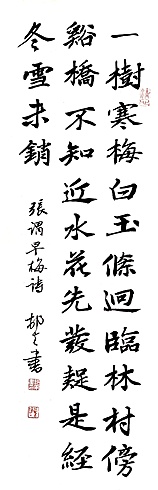 一樹寒梅白玉條迴臨林村傍
谿橋不知近水花先發疑是經
冬雪未銷
張謂早梅詩
書